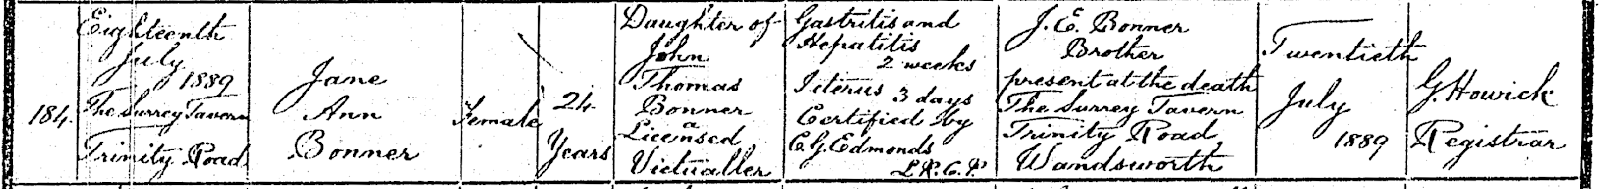 184.
Eighteenth
July
1889
The Surrey Tavern
Trinity Road
Jane
Ann
Bonner
Female
24
Years
Daughter of
John
Thomas
Bonner
a
Licensed
Victualler
Gastritis and
Hepatitis
2 weeks
Icterus 3 days
Certified by
C. G. Edmonds
L.R.C.P
J. E. Bonner
Brother
present at the death
The Surrey Tavern
Trinity Road
Wandsworth
Twentieth
July
1889
G. Howick
Registrar